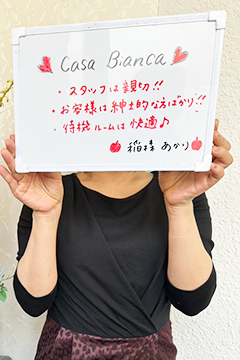 Casa Bianca
・スタッフは親切!!
・お客様は紳士的な方ばかり!!
・待機ルームは快適♪
稲森 あかり